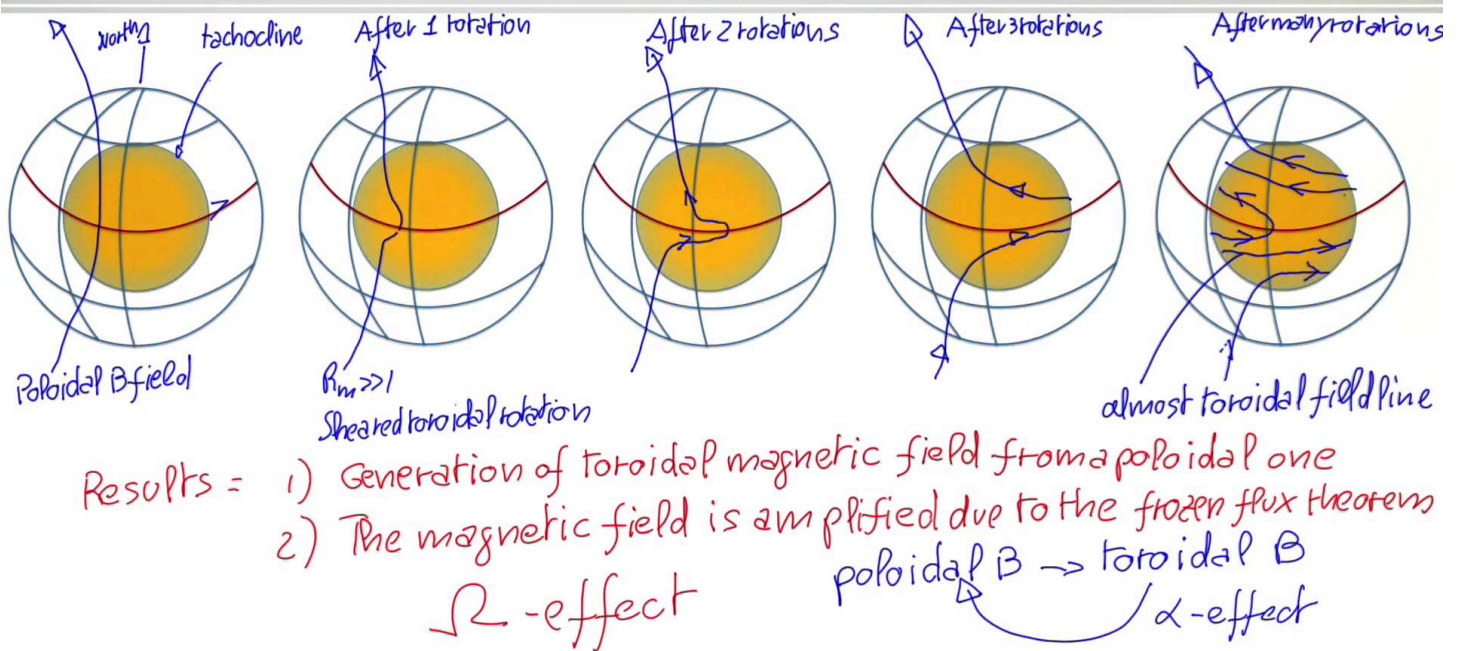 North
tachocline
After 1 rotation
After 2 rotations
After 3 rotations
After many rotations
Poloidal B field
Rm>>1
Sheared toroidal rotation
almost toroidal field line
Results = 1) Generation of toroidal magnetic field from a poloidal one
2) The magnetic field is amplified due to the frozen flux theorem
Ω-effect
poloidal B → toroidal B
α-effect